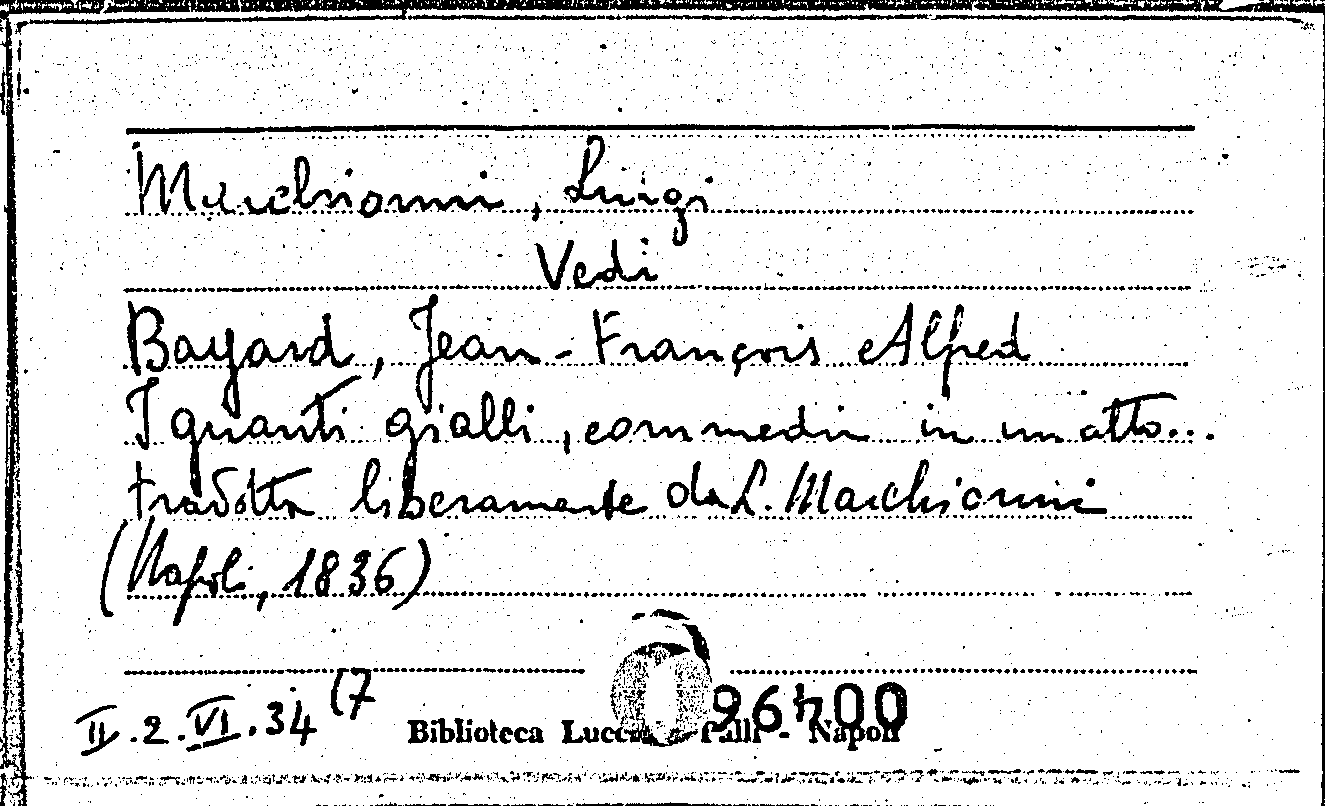 Marchionni, Luigi
Vedi
Bayard, Jean-François Alfred
I guanti gialli, commedia in un atto...
tradotta liberamente da L. Marchionni
(Napoli, 1836)
II.2.VI.34 (7
Biblioteca Lucchesi Palli - Napoli